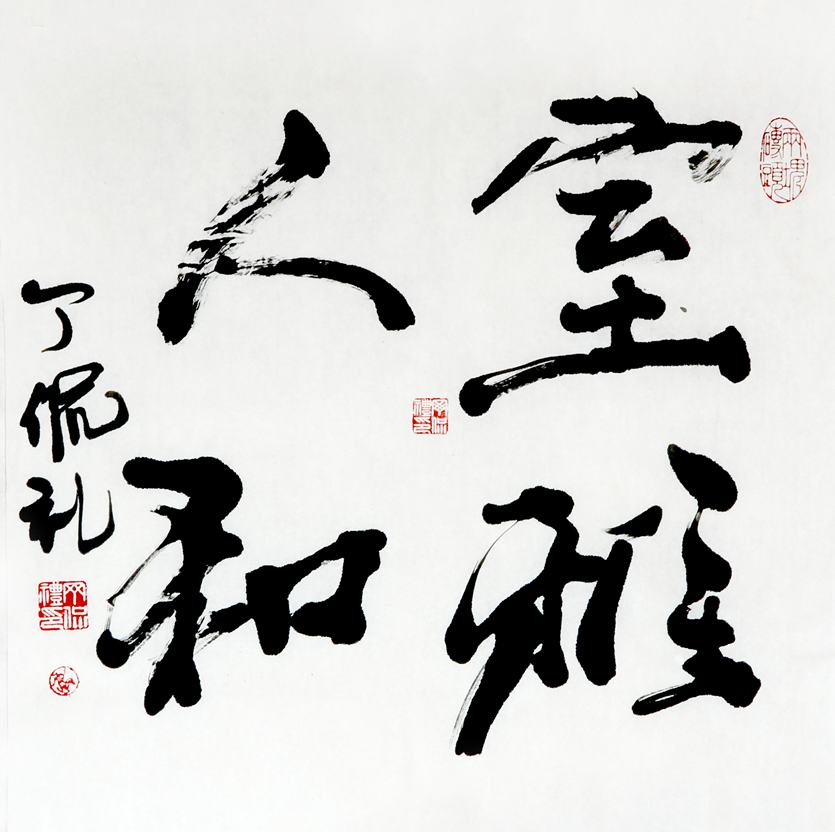 室雅
人和
丁侃礼